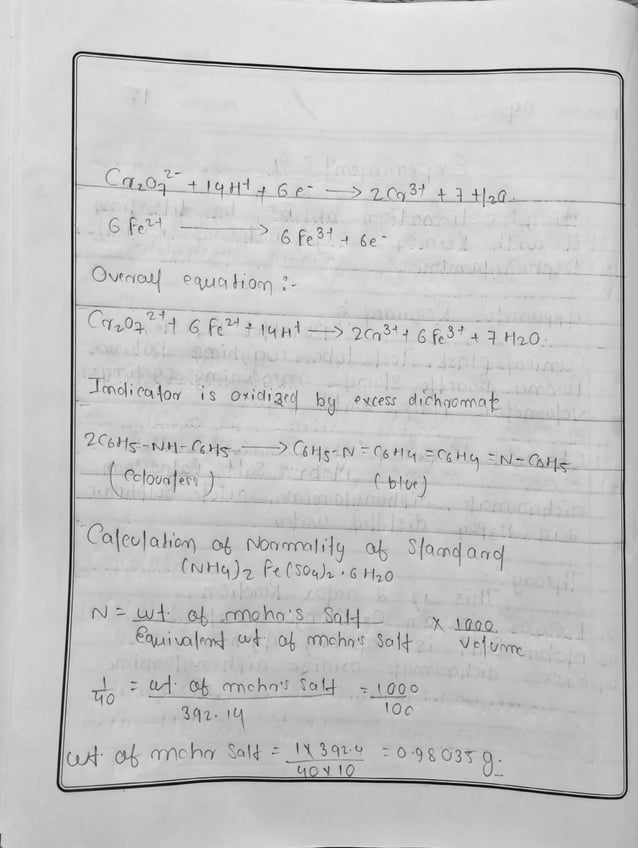 Cr₂O₇²⁻ + 14H⁺ + 6e⁻ → 2Cr³⁺ + 7H₂O.
6Fe²⁺ → 6Fe³⁺ + 6e⁻
Overall equation :-
Cr₂O₇²⁺ + 6Fe²⁺ + 14H⁺ → 2Cr³⁺ + 6Fe³⁺ + 7H₂O.
Indicator is oxidized by excess dichromate
2C6H5-NH-C6H5 → C6H5-N=C6H4=C6H4=N-C6H5
(Colourless) (blue)
Calculation of Normality of Standard
(NH4)2 Fe(SO4)2·6H2O
N = wt. of mohr's Salt / Equivalent wt. of mohr's Salt × 1000 / Volume
1/40 = wt. of mohr's Salt / 392.14 = 1000 / 100
wt. of mohr Salt = 1×392.4 / 40×10 = 0.98035 g.